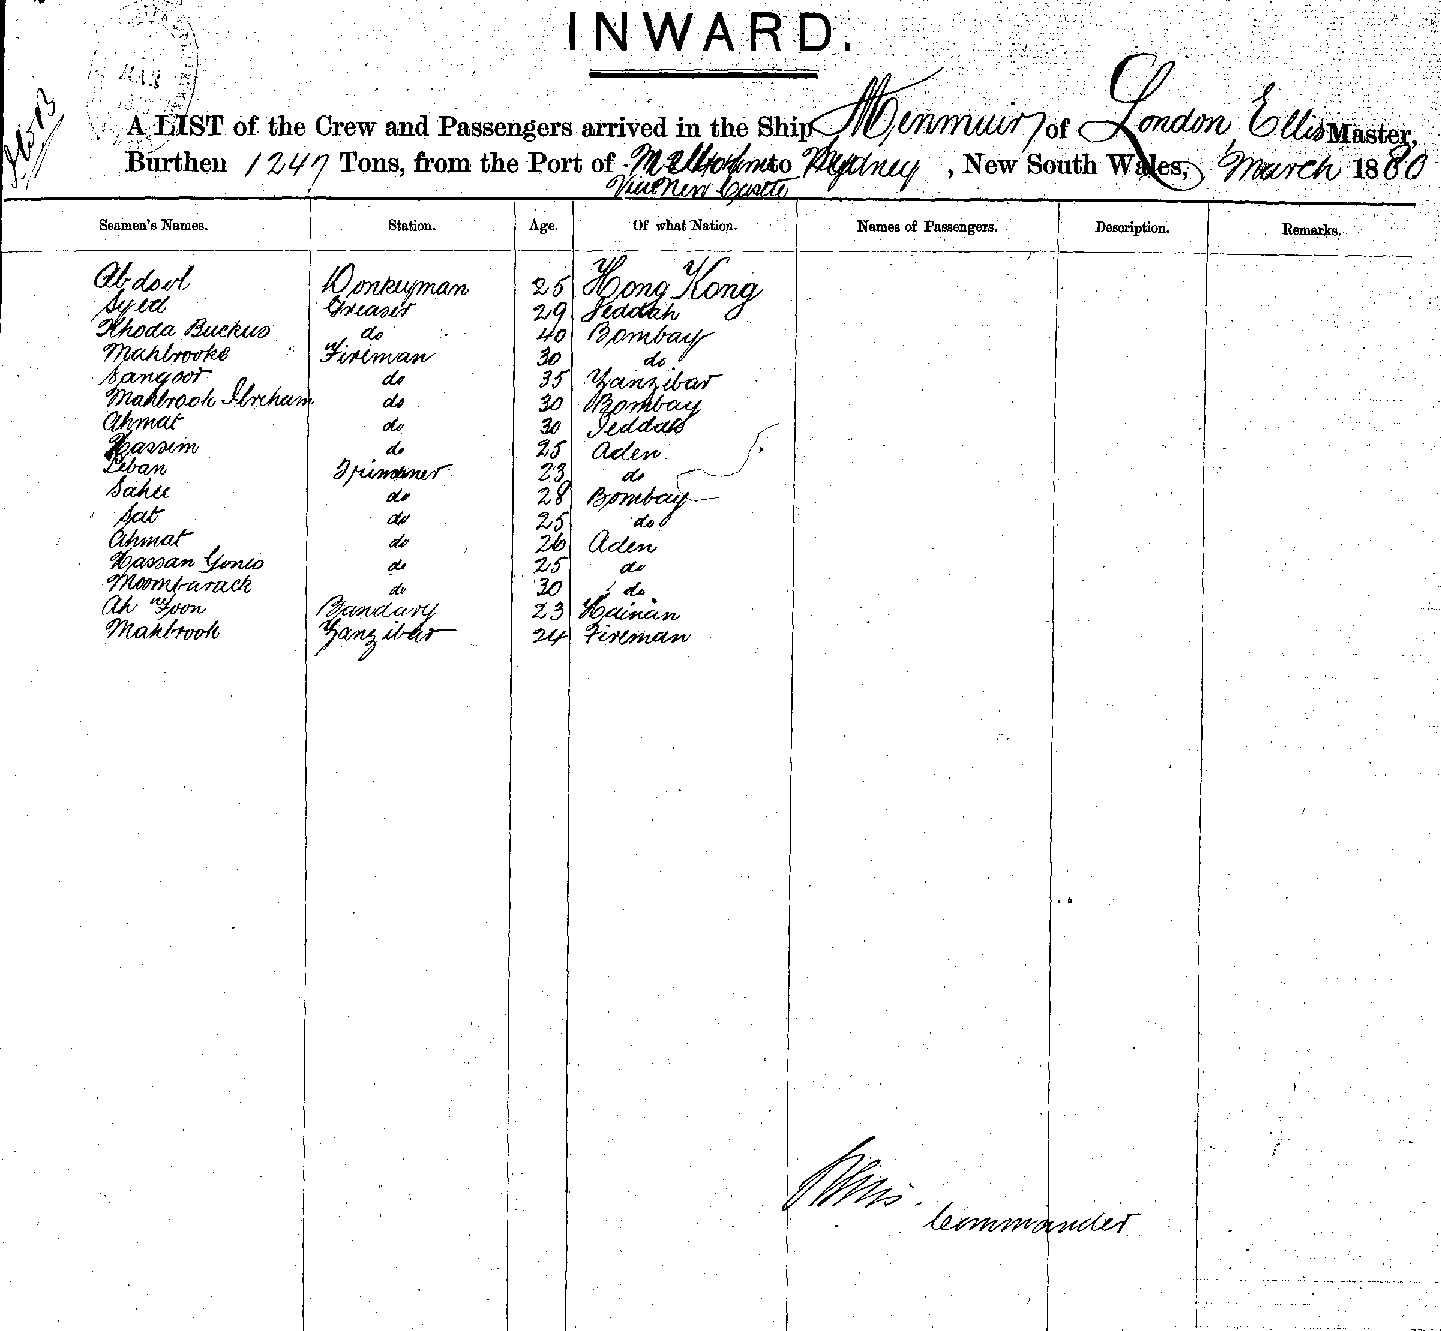 INWARD.
A LIST of the Crew and Passengers arrived in the Ship Menmuir of London, Ellis Master,
Burthen 1247 Tons, from the Port of Melbourne to Sydney, New South Wales, March 1880
Via New Castle
Seamen's Names. Station. Age. Of what Nation. Names of Passengers. Description. Remarks.
Abdool Donkeyman 25 Hong Kong
Syed Greaser 29 Jeddah
Khoda Buckus do 40 Bombay
Mahbrooke Fireman 30 do
Sangoor do 35 Zanzibar
Mahbrook Ibreham do 30 Bombay
Ahmat do 30 Jeddah
Hassim do 25 Aden
Leban Trimmer 23 do
Sahee do 28 Bombay
Sat do 25 do
Ahmat do 26 Aden
Hassan Yonis do 25 do
Moombarack do 30 do
Ah Foon Bandary 23 Hainan
Mahbrook Zanzibar 24 Fireman
Ellis.
Commander